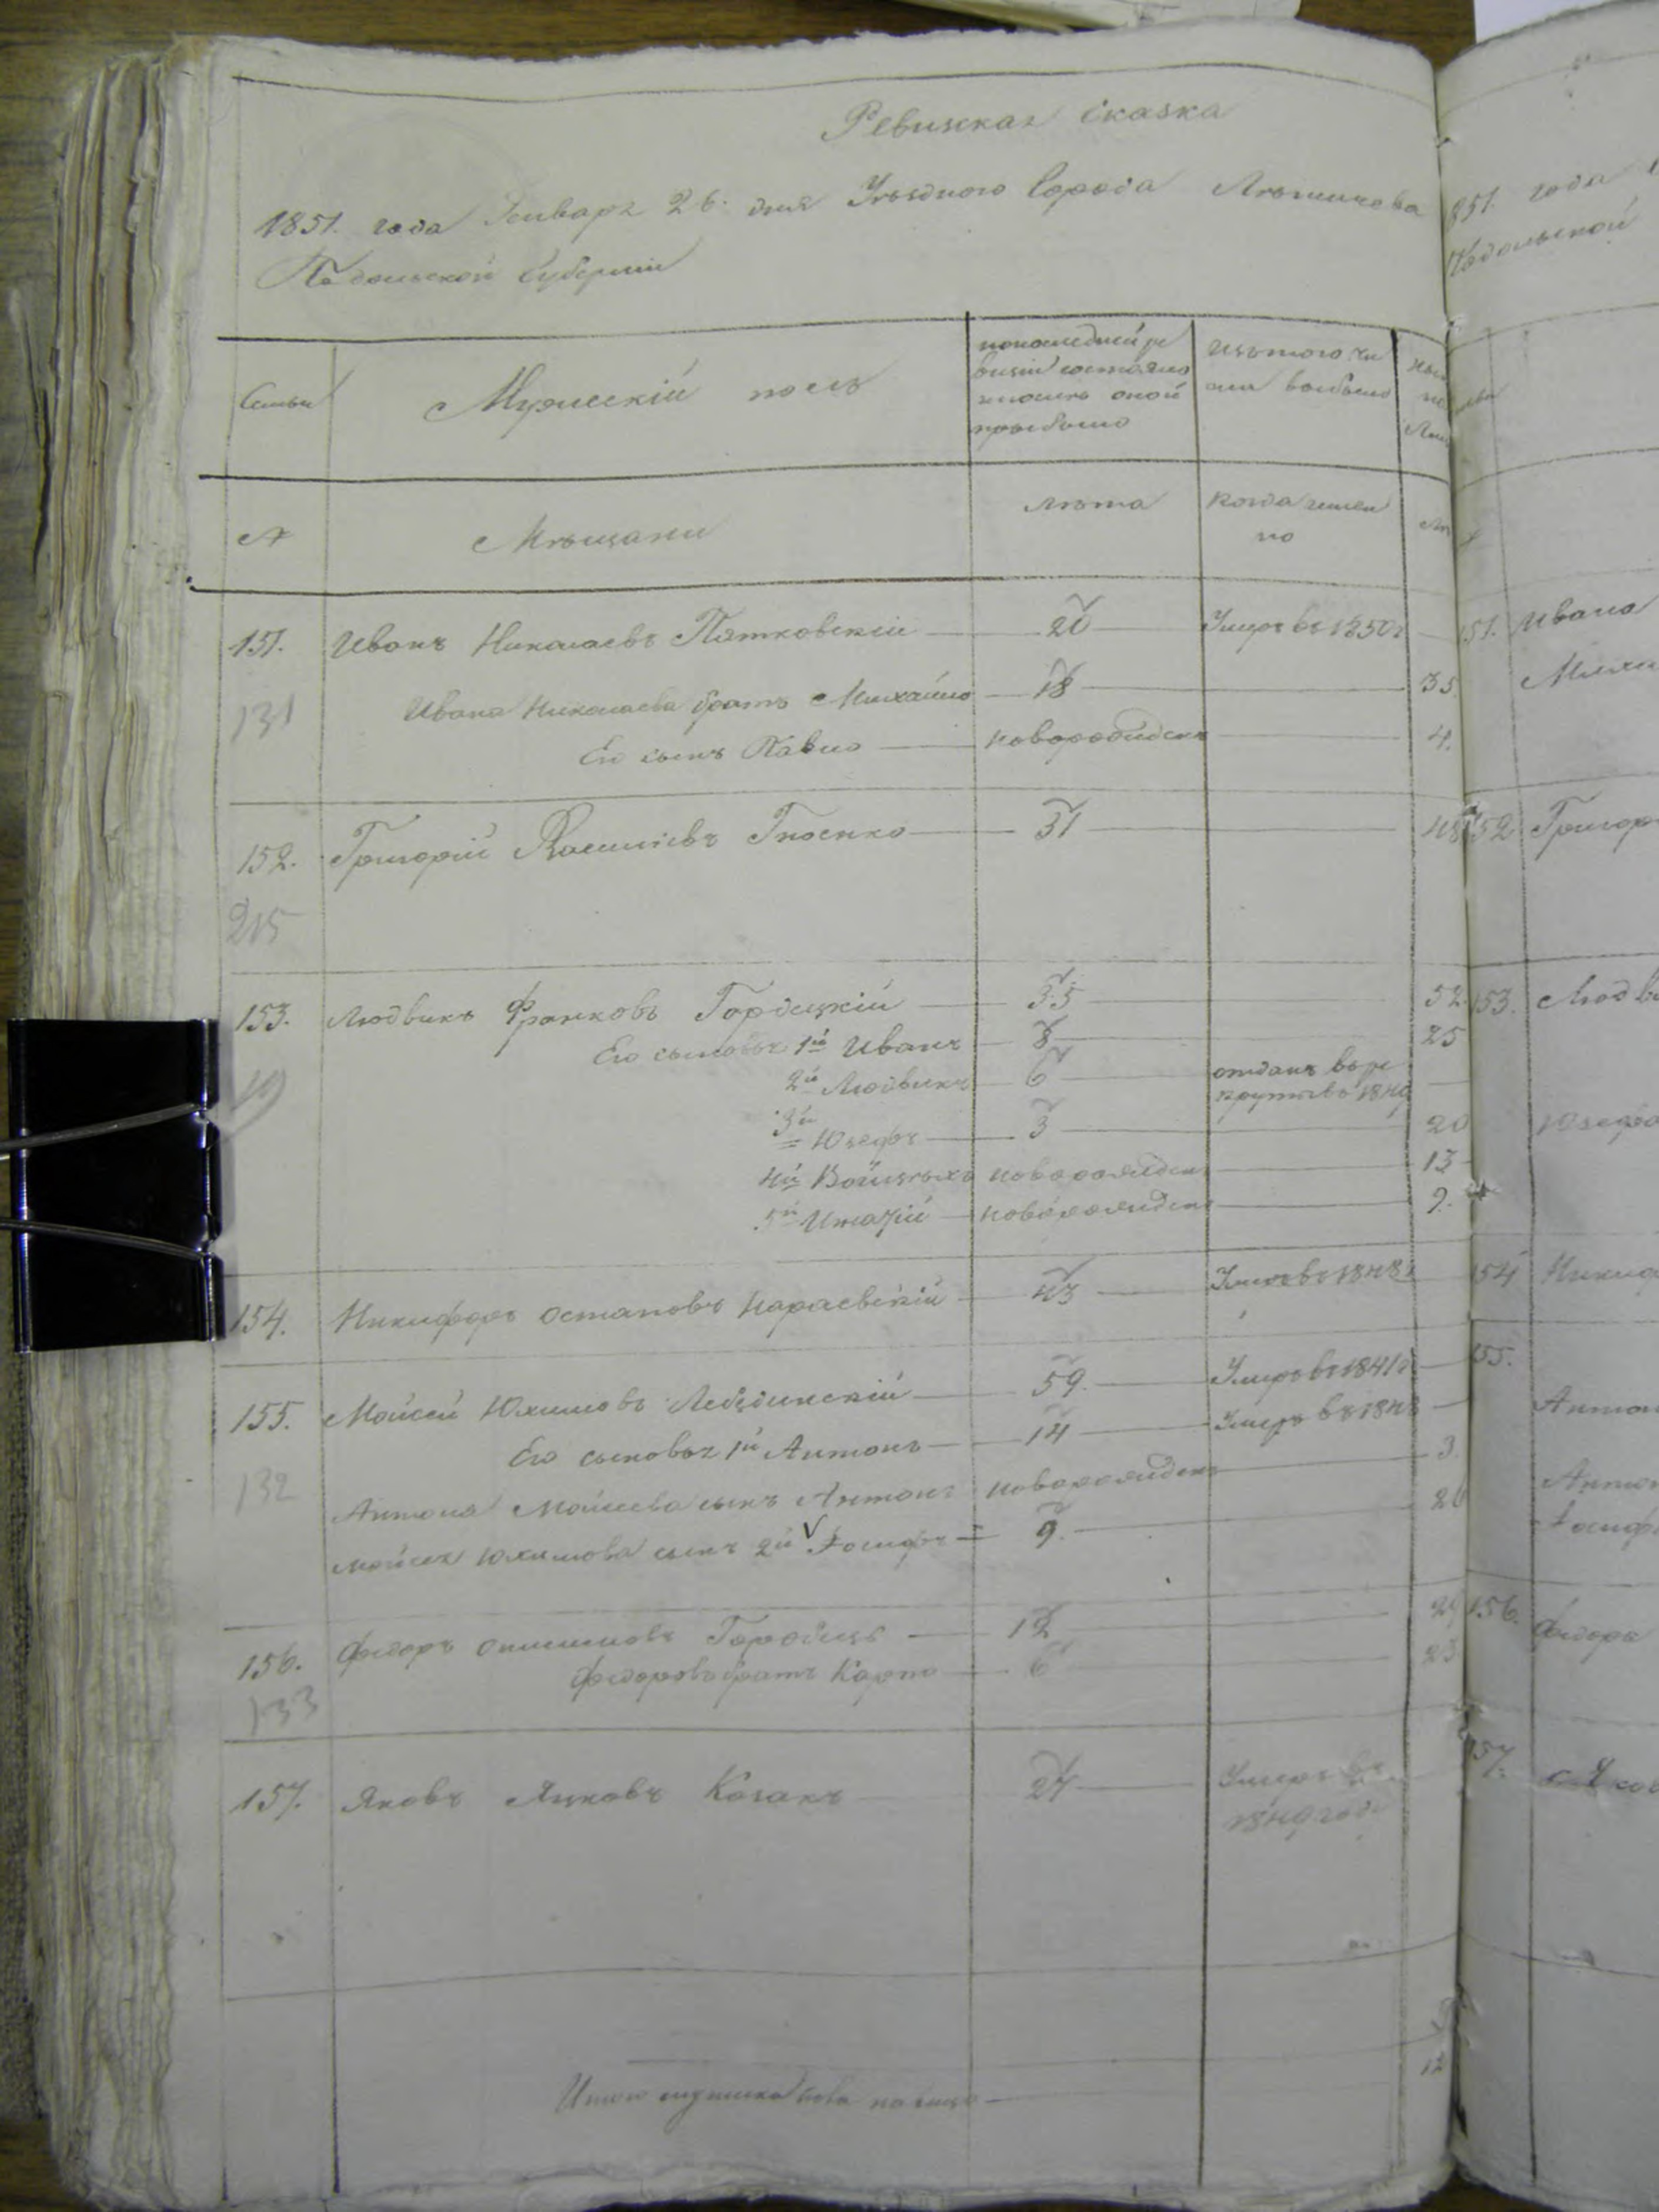 Ревизская сказка
1851. года Генваря 26. дня Уѣзднаго Города Лѣтичева
Подольской Губерніи
Семьи
Мужескій полъ
по последней ре
визіи состояло
и после оной
прибыло
Изъ того чи
сла выбыло
№
Мѣщани
лѣта
когда имен
но
151. Иванъ Николаевъ Пятковскій — 20 — Умеръ въ 1850 г —
131
Ивана Николаева братъ Михайло — 18 — 35.
Его сынъ Павло — новорожденъ — 4.
152. Григорій Василіевъ Гноенко — 31 — 48
215
153. Людвикъ Франковъ Гордецкій — 35 — 52.
Его сыновья 1й Иванъ — 8 — 25
2й Людвикъ — 6 — отданъ въ ре
круты въ 1849 —
3й Юзефъ — 3 — 20
4й Войцѣхъ новорожденъ — 13
5й Игнацій — новорожденъ — 9.
154. Никифоръ Остаповъ Караевскій — 43 — Умеръ въ 1848 г
155. Мойсей Юхимовъ Лебединскій — 59. — Умеръ въ 1841 г —
Его сыновья 1й Антонъ — 14 — Умеръ въ 1848 —
132
Антона Мойсеева сынъ Антонъ новорожденъ — 3.
Мойсея Юхимова сынъ 2й Іосифъ = 9. — 26
156. Федоръ Онишковъ Городецъ — 12 — 29
Федоровъ братъ Карпо — 6 — 23
133
157. Яковъ Яцковъ Козакъ — 27 — Умеръ въ
1849 годе
Итого мужеска пола на лицо — 12
851. года
Подольской
151. Ивана
152 Григор
153. Людви
Юзефа
154 Никиф
155.
Антон
Антон
Іосиф
156. Федора
157.